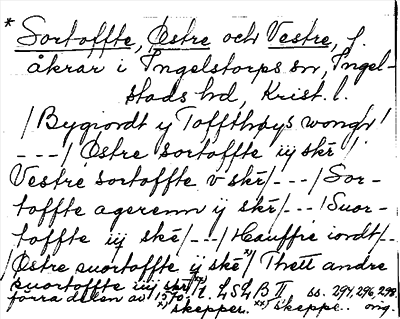 * Sortoffte, Østre och Vestre, f.
åkrar i Ingelstorps sn, Ingel-
stads hd, Krist. l.
/Bygiordt y Toffthøys wongh/
---/Østre sortoffte iij skē/
Vestre sortoffte v skē/---/Sor-
toffte agerenn ij skē/---/Suor-
toffte iij skē/---/Hauffre iordt/--
/Østre suortoffte ij skē x)/ Thett andre
suortoffte iiij skē
förra delen av 1570-t. LSLB II ss. 294, 296, 298.
x) skepper. xx) skeppe.. orig.